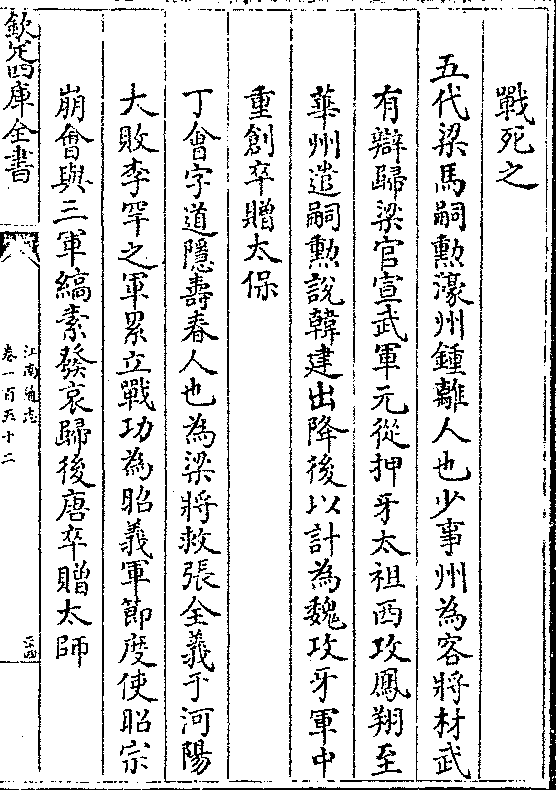 戰死之
五代梁馬嗣勲濠州鍾離人也少事州為容將材武
有辯歸梁官宣武軍元從押牙太祖西攻鳳翔至
華州遣嗣勲說韓建出降後以計為魏攻牙軍中
重創卒贈太保
丁會字道隱壽春人也為梁將救張全義于河陽
大敗李罕之軍累立戰功為昭義軍節度使昭宗
崩會與三軍縞素發哀歸後唐卒贈太師
欽定四庫全書
江南通志
卷一百五十二